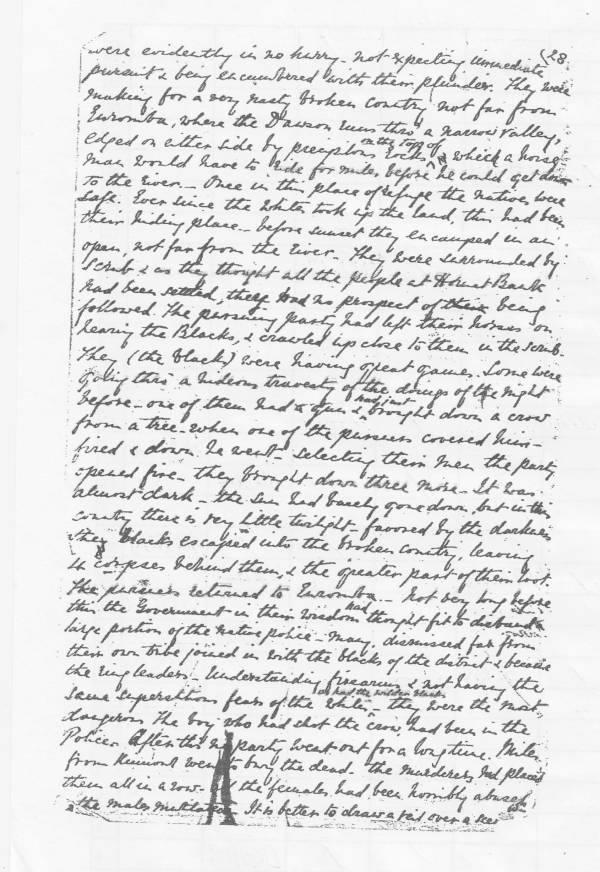 (28
were evidently in no hurry - not expecting immediate
pursuit & being encumbered with their plunder. They were
making for a very nasty broken country not far from
Euromba, where the Dawson runs thro' a narrow valley,
edged on either side by precipitous rocks
on the top of
which a horse-
man would have to ride for miles, before he could get down
to the river. - Once in this place of refuge the natives were
safe. Ever since the whites took up the land, this had been
their hiding place - before sunset they encamped in an
open, not far from the river. They were surrounded by
Scrub & as they thought all the people at Hornet Bank
had been settled, there had no prospect of their being
followed. The pursuing party had left their horses on
hearing the Blacks, & crawled up close to them in the scrub.
They (the blacks) were having great games. Some were
going thro' a hideous travesty of the doings of the night
before - one of them had a gun &
had just
brought down a crow
from a tree - when one of the pursuers covered him -
fired & down he went - selecting their men the party
opened fire - they brought down three more - It was
almost dark - the sun had barely gone down, but in this
country there is very little twilight - favored by the darkness
The Blacks escaped into the broken country, leaving
4 corpses behind them, & the greater part of their loot.
The pursuers returned to Euromba - Not very long before
this the Government in their wisdom
had
thought fit to disband a
large portion of the native police - many, dismissed far from
their own tribe joined in with the blacks of the district & became
the ring leaders - Understanding firearms & not having the
same superstitious fears of the whites
as had the wilder blacks
- they were the most
dangerous. The boy who had shot the crow, had been in the
Police. After this party went out for a long time. Miles
from Kinnoul went to bury the dead - the murderers had placed
them all in a row - the females had been horribly abused
& the males mutilated. It is better to draw a veil over a